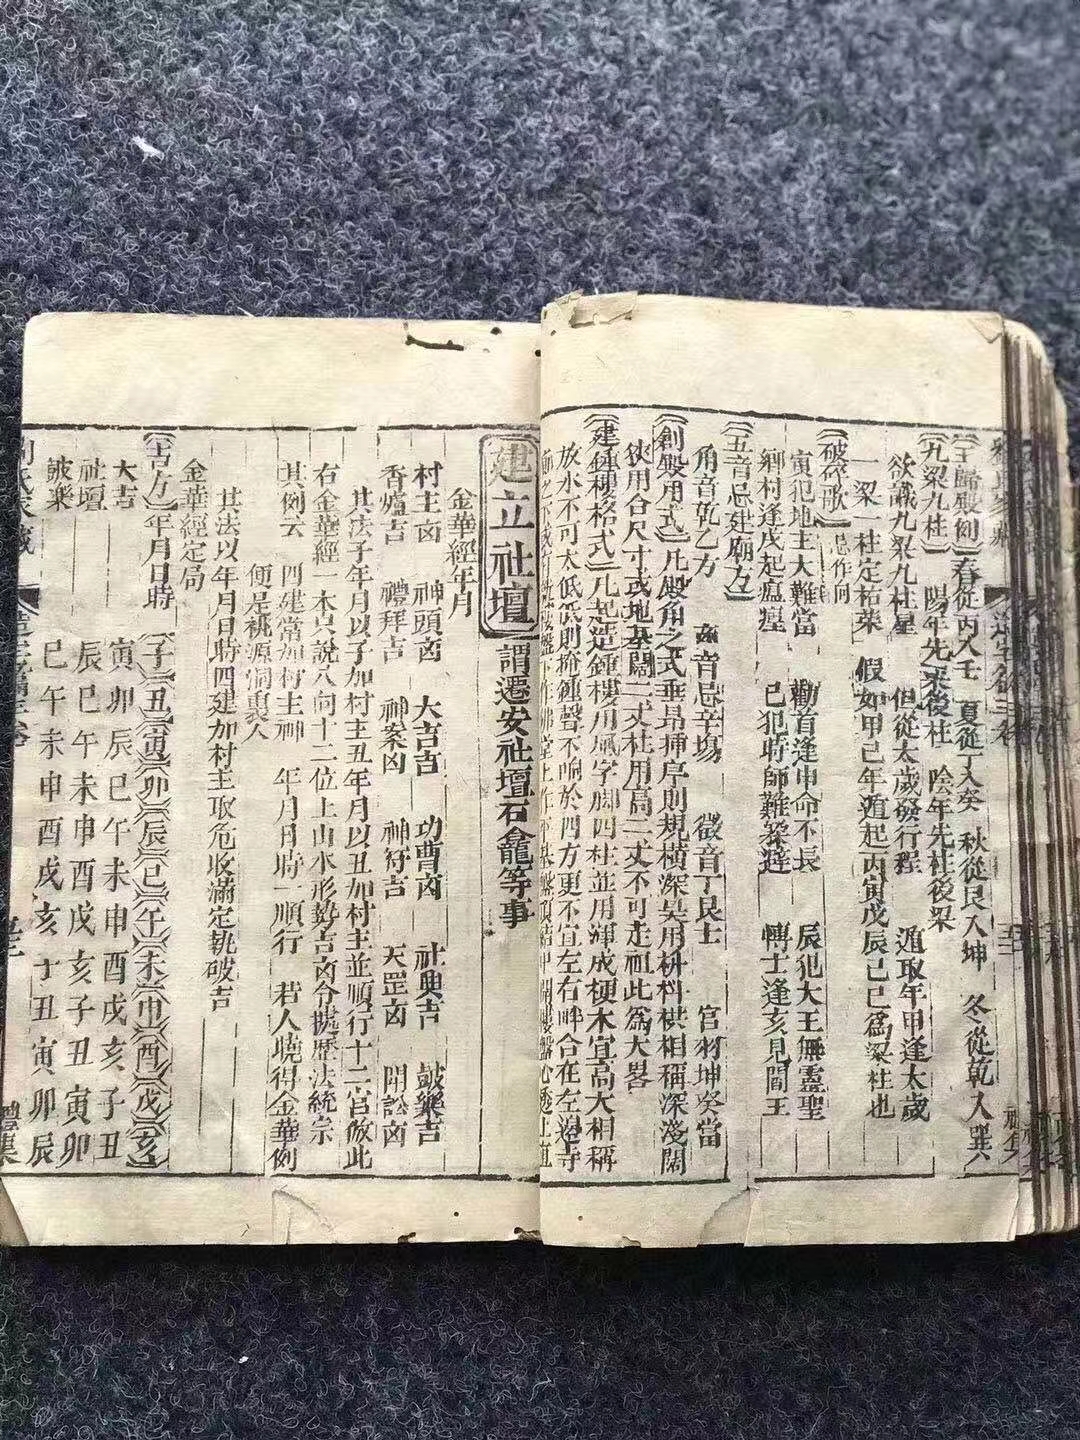 春從丙入壬 夏從丁入癸 秋從艮入坤 冬從乾入巽
九梁九柱 陽年先梁後柱 陰年先柱後梁
欲識九梁九柱星 但從太歲發行程 遁取年甲逢太歲
一梁一柱定祐榮 假如甲己年遁起丙寅戊辰己巳為梁柱也
破碎歌 忌作向
寅犯地主大難當 勸首逢申命不長 辰犯大王無靈聖
鄉村逢戌起瘟瘽 巳犯時師難築遶 轉士逢亥見閻王
五音忌建廟方
角音乾乙方 商音忌辛場 徵音丁艮士 宮羽坤癸當
創殿用式 凡殿角之式垂昂插序則規橫深奐用枓料栱相稱深淺闊
狹用合尺寸或地基闊二丈柱用高二丈不可走祖此為大畧
建鍾樓格式 凡起造鍾樓用風字脚四柱並用渾成梗木宜高大相稱
放水不可太低低則掩鍾聲不响於四方更不宜左右畔合在左邊寺
建立社壇 謂遷安社壇石龕等事
金華經年月
村主凶 神頭凶 大吉吉 功曹凶 社典吉 鼓樂吉
香爐吉 禮拜吉 神案凶 神符吉 天罡凶 開訟凶
其法子年月以子加村主丑年月以丑加村主並順行十二宮倣此
右金華經一本只說八向十二位上山水形勢吉凶今據歷法統宗
其例云 四建常加村主神 年月日時一順行 若人曉得金華例
便是桃源洞裏人
其法以年月日時四建加村主取危收滿定執破吉
金華經定局
吉方 年月日時 子 丑 寅 卯 辰 巳 午 未 申 酉 戌 亥
大吉 寅卯辰巳午未申酉戌亥子丑
社壇 辰巳午未申酉戌亥子丑寅卯
鼓樂 巳午未申酉戌亥子丑寅卯辰